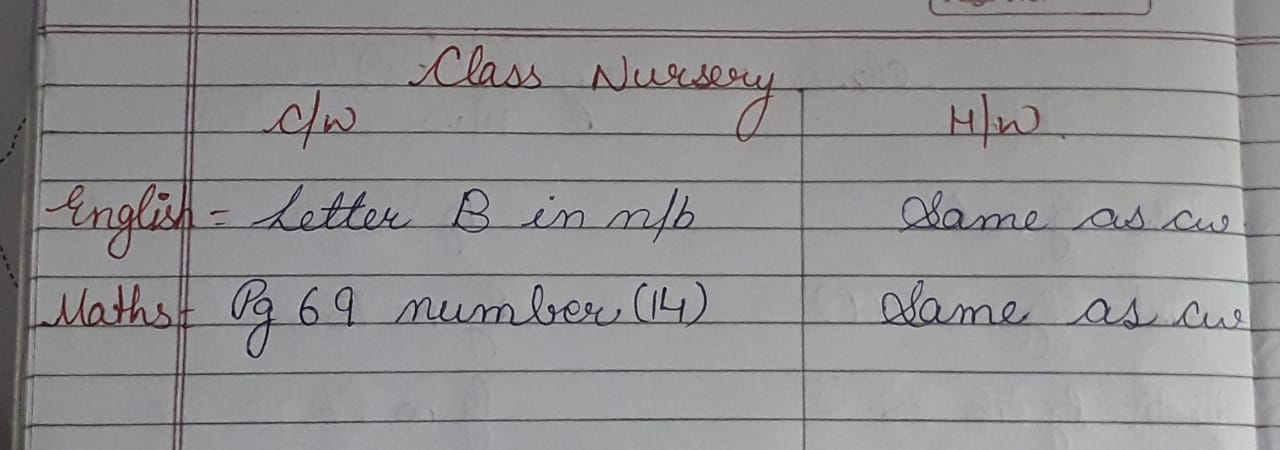 Class Nursery
C/W H/W
English = Letter B in n/b Same as cw
Maths = Pg 69 number (14) Same as cw